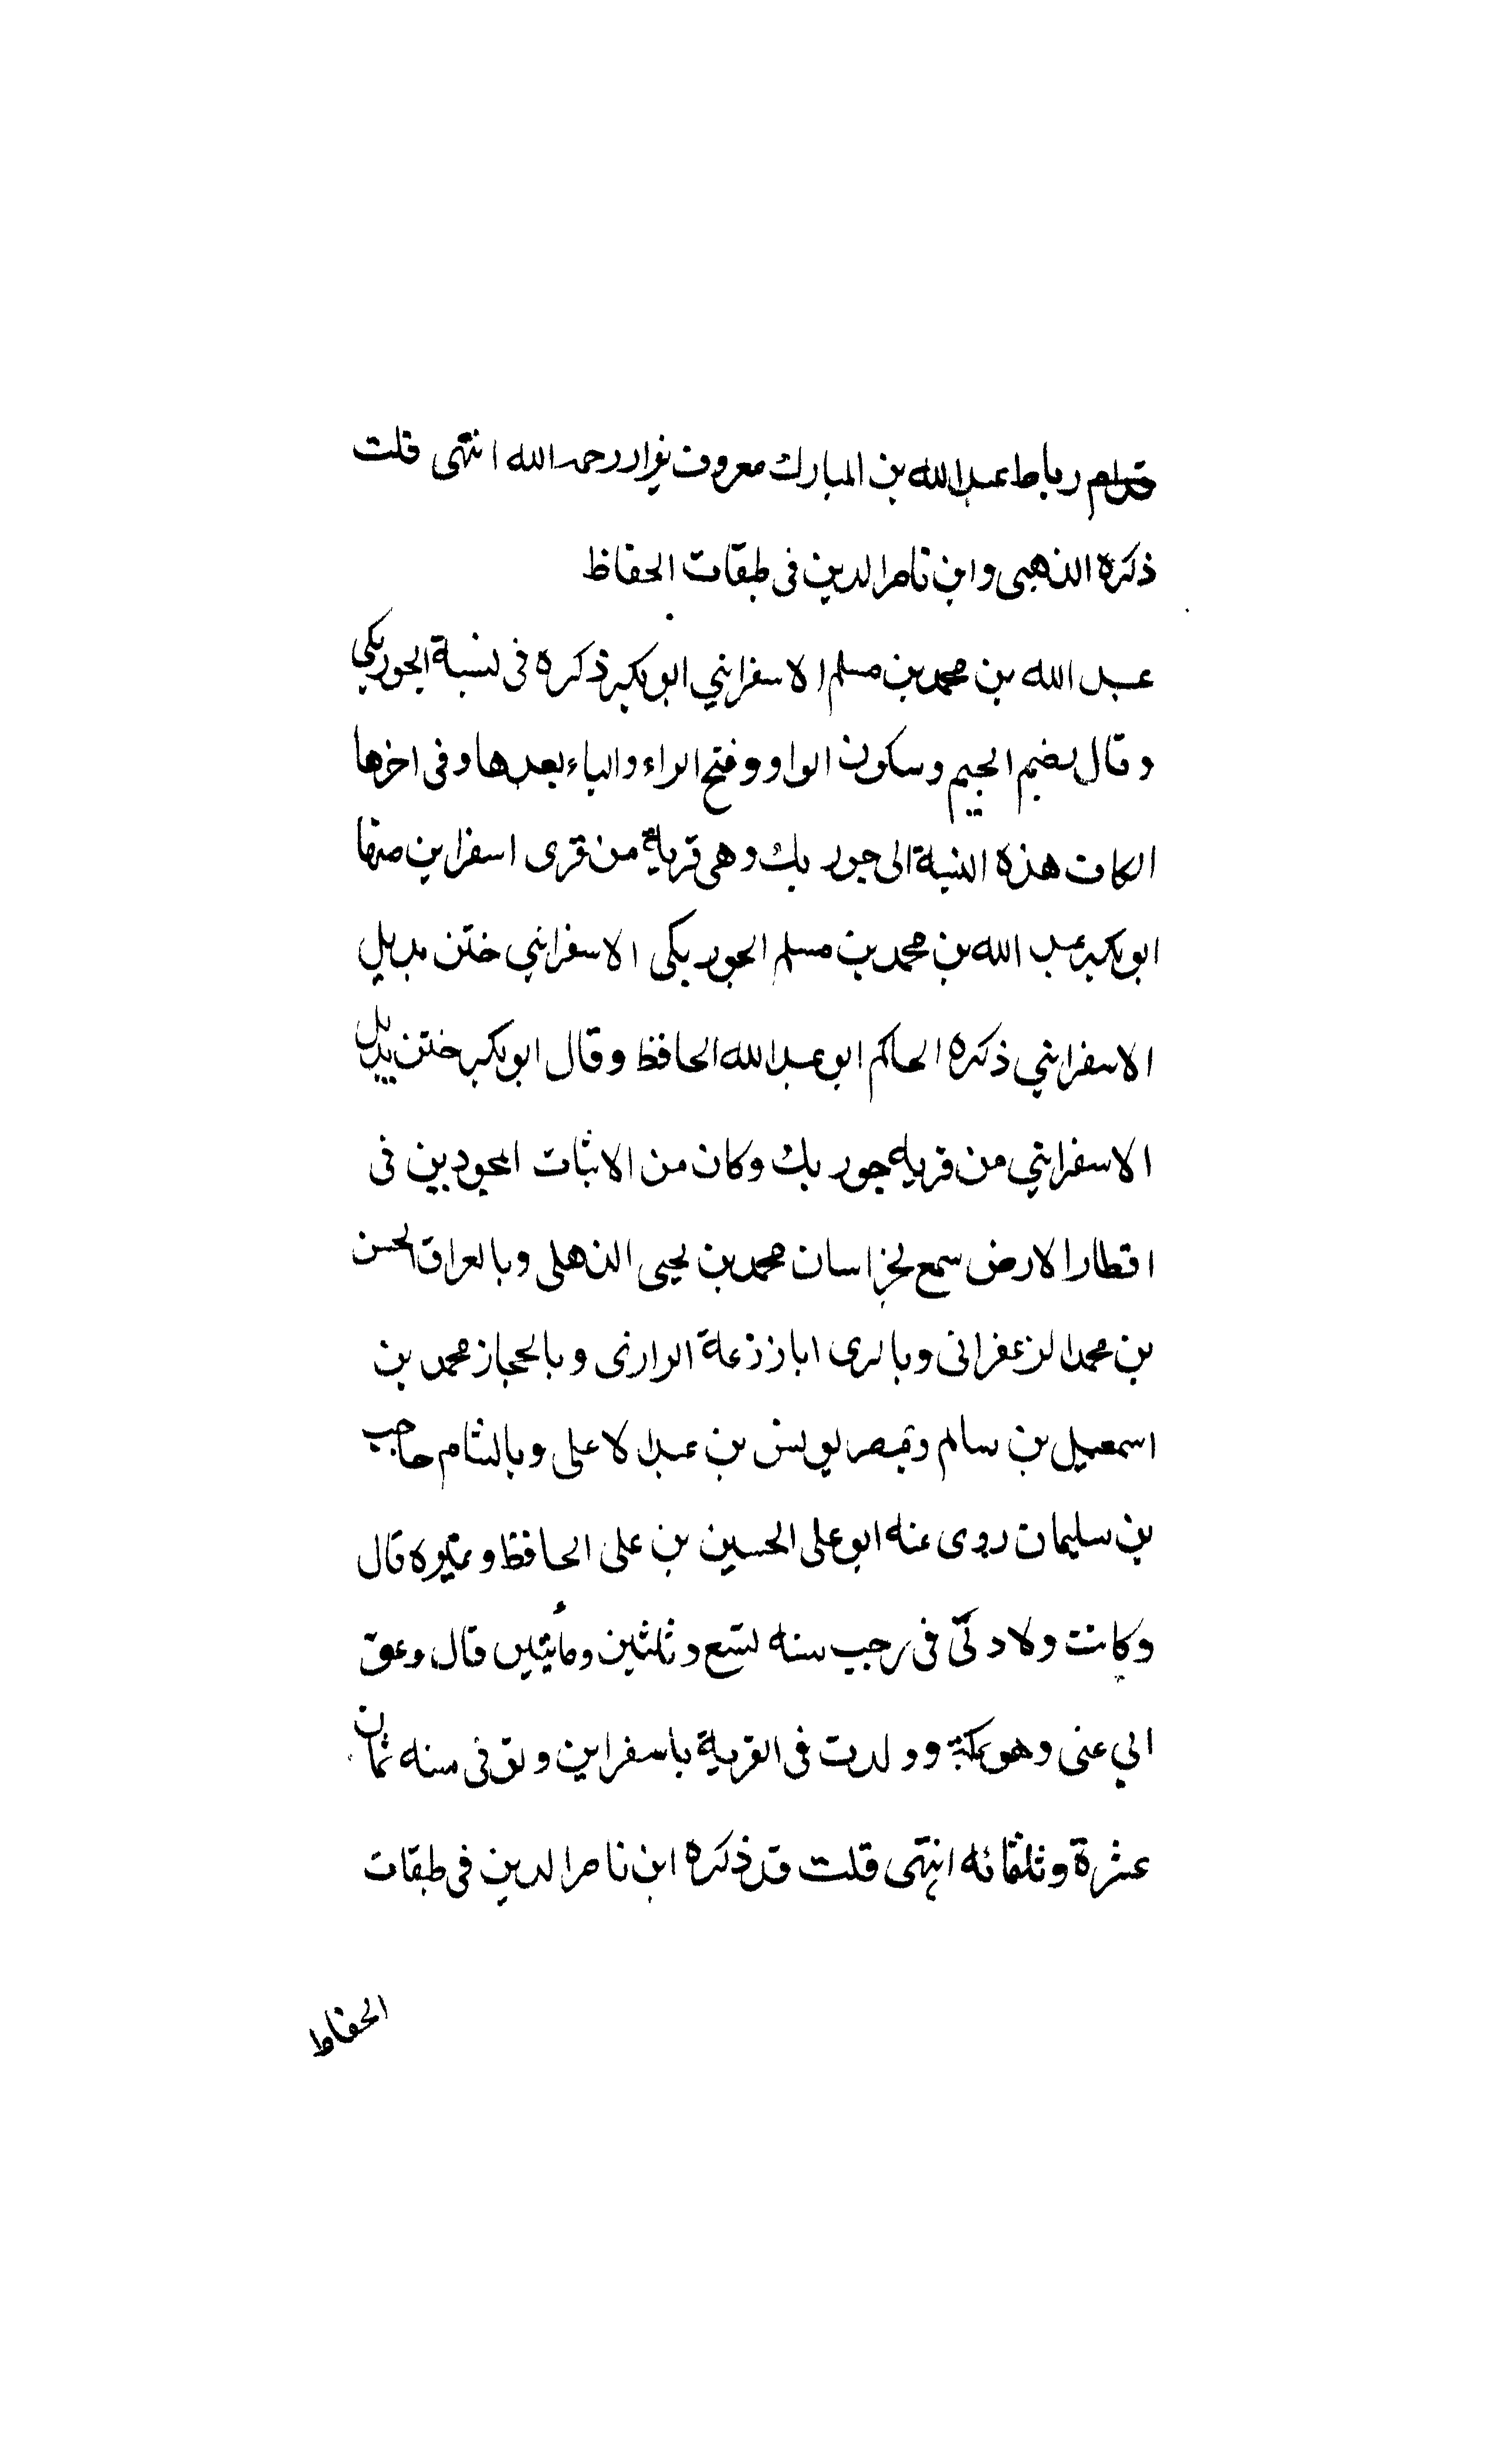 قدام رباط عبد الله بن المبارك معروف يزار رحمه الله انتهى قلت
ذكره الذهبي وابن ناصر الدين فى طبقات الحفاظ
عبد الله بن محمد بن مسلم الاسفرايني ابو بكر ذكره فى نسبة الجوربكي
وقال بضم الجيم وسكون الواو وفتح الراء والباء بعدها وفى اخرها
الكاف هذه النسبة الى جوربك وهى قرية من قرى اسفراين منها
ابو بكر عبد الله بن محمد بن مسلم الجوربكى الاسفرايني ختن بديل
الاسفرايني ذكره الحاكم ابو عبد الله الحافظ وقال ابو بكر ختن بديل
الاسفرايني من قريه جوربك وكان من الاثبات المجودين فى
اقطار الارض سمع بخراسان محمد بن يحيى الذهلى وبالعراق الحسن
بن محمد الزعفرانى وبالرى ابا زرعة الرازى وبالحجاز محمد بن
اسمعيل بن سالم وبمصر يونس بن عبد الاعلى وبالشام حاجب
بن سليمان روى عنه ابو على الحسين بن على الحافظ وغيره قال
وكانت ولادتى فى رجب سنه تسع وثلثين ومأيتين قال وعق
ابي عنى وهو بمكة وولدت فى القرية باسفراين وتوفى سنه ثمان
عشرة وثلثمائه انتهى قلت قد ذكره ابن ناصر الدين فى طبقات
الحفاظ